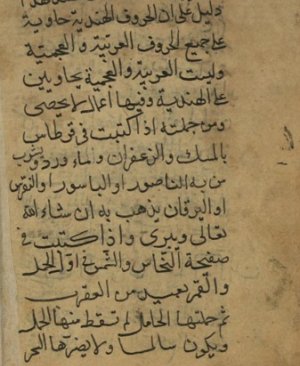 دليل على ان الحروف الهندية حاوية
على جميع الحروف العربية والعجمية
وليست العربية والعجمية بحاويتين
على الهندية وفيها اعمال لا يحصى
ومن جملته اذا كتبت في قرطاس
بالمسك والزعفران وماء ورد ويشرب
من به الناصور او الباسور او النقرس
او اليرقان يذهب به ان شاء الله
تعالى ويبرى واذا كتبت في
صفيحة النحاس والشمس في اول الحمل
والقمر بعيد من العقرب
ثم حملتها الحامل لم تسقط منها الحمل
ويكون سالما ولا يضرها السحر